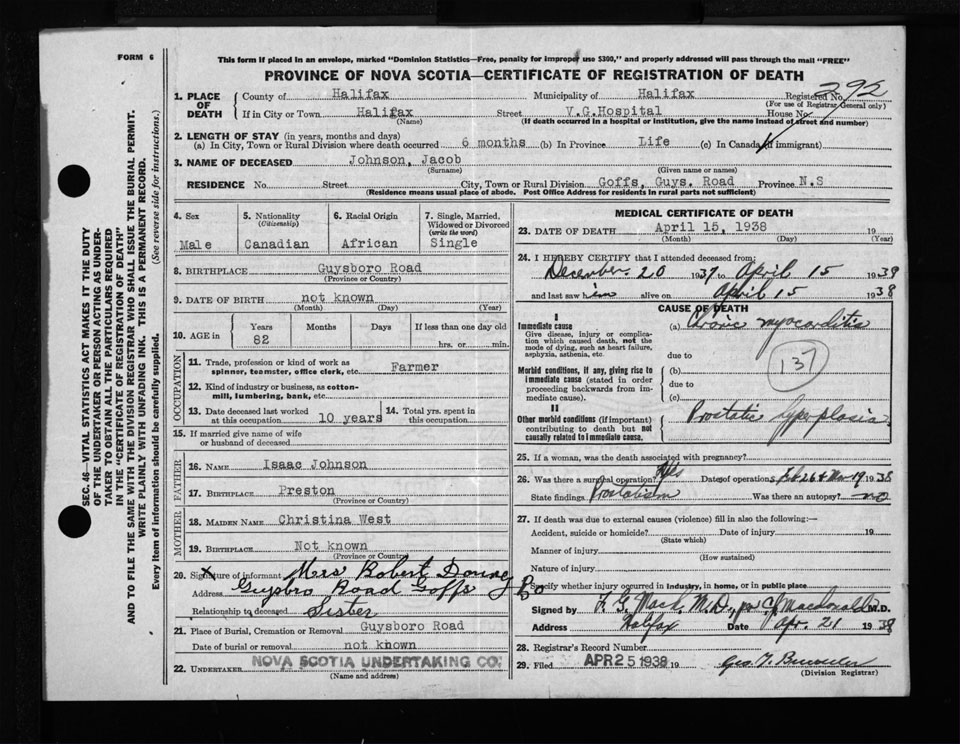 FORM 6
This form if placed in an envelope, marked "Dominion Statistics—Free, penalty for improper use $300," and properly addressed will pass through the mail "FREE"
PROVINCE OF NOVA SCOTIA—CERTIFICATE OF REGISTRATION OF DEATH
292
1. PLACE OF DEATH
County of Halifax Municipality of Halifax Registered No.
(For use of Registrar General only)
If in City or Town Halifax Street V.G.Hospital House No.
(Name) (If death occurred in a hospital or institution, give the name instead of street and number)
2. LENGTH OF STAY (in years, months and days)
(a) In City, Town or Rural Division where death occurred 6 months (b) In Province Life (c) In Canada (if immigrant)
3. NAME OF DECEASED Johnson, Jacob
(Surname) (Given name or names)
RESIDENCE No. Street City, Town or Rural Division Goffs, Guys. Road Province N.S
(Residence means usual place of abode. Post Office Address for residents in rural parts not sufficient)
4. Sex
Male
5. Nationality
(Citizenship)
Canadian
6. Racial Origin
African
7. Single, Married, Widowed or Divorced
(write the word)
Single
8. BIRTHPLACE Guysboro Road
(Province or Country)
9. DATE OF BIRTH not known
(Month) (Day) (Year)
10. AGE in
Years Months Days If less than one day old
82 hrs. or min.
OCCUPATION
11. Trade, profession or kind of work as
spinner, teamster, office clerk, etc. Farmer
12. Kind of industry or business, as cotton-
mill, lumbering, bank, etc.
13. Date deceased last worked
at this occupation 10 years
14. Total yrs. spent in
this occupation
15. If married give name of wife
or husband of deceased
FATHER
16. NAME Isaac Johnson
17. BIRTHPLACE Preston
(Province or Country)
MOTHER
18. MAIDEN NAME Christina West
19. BIRTHPLACE Not known
(Province or Country)
20. Signature of informant Mrs Robert
Address Guysbro Road Goffs
Relationship to deceased Sister
21. Place of Burial, Cremation or Removal Guysboro Road
Date of burial or removal not known
22. UNDERTAKER NOVA SCOTIA UNDERTAKING CO.
(Name and address)
MEDICAL CERTIFICATE OF DEATH
23. DATE OF DEATH April 15, 1938 19
(Month) (Day) (Year)
24. I HEREBY CERTIFY that I attended deceased from:
December 20 1937 to April 15 1938
and last saw him alive on April 15 1938
CAUSE OF DEATH
I
Immediate cause
Give disease, injury or complication which caused death, not the mode of dying, such as heart failure, asphyxia, asthenia, etc.
(a) Chronic myocarditis
due to
137
Morbid conditions, if any, giving rise to immediate cause (stated in order proceeding backwards from immediate cause).
(b)
due to
(c)
II
Other morbid conditions (if important) contributing to death but not causally related to immediate cause.
Prostatic hyperplasia
25. If a woman, was the death associated with pregnancy?
26. Was there a surgical operation? Yes Date of operation Feb 26 & Mar 19 1938
State findings Prostatism Was there an autopsy? no
27. If death was due to external causes (violence) fill in also the following:—
Accident, suicide or homicide? Date of injury 19
(State which)
Manner of injury
(How sustained)
Nature of injury
Specify whether injury occurred in industry, in home, or in public place
Signed by F. G. Mack, M.D., per Macdonald M.D.
Address Halifax Date Apr. 21 1938
28. Registrar's Record Number
29. Filed APR 25 1938 19 Geo.
(Division Registrar)
SEC. 46—VITAL STATISTICS ACT MAKES IT THE DUTY
OF THE UNDERTAKER OR PERSON ACTING AS UNDER-
TAKER TO OBTAIN ALL THE PARTICULARS REQUIRED
IN THE "CERTIFICATE OF REGISTRATION OF DEATH"
AND TO FILE THE SAME WITH THE DIVISION REGISTRAR WHO SHALL ISSUE THE BURIAL PERMIT.
WRITE PLAINLY WITH UNFADING INK. THIS IS A PERMANENT RECORD.
Every item of information should be carefully supplied. (See reverse side for instructions.)